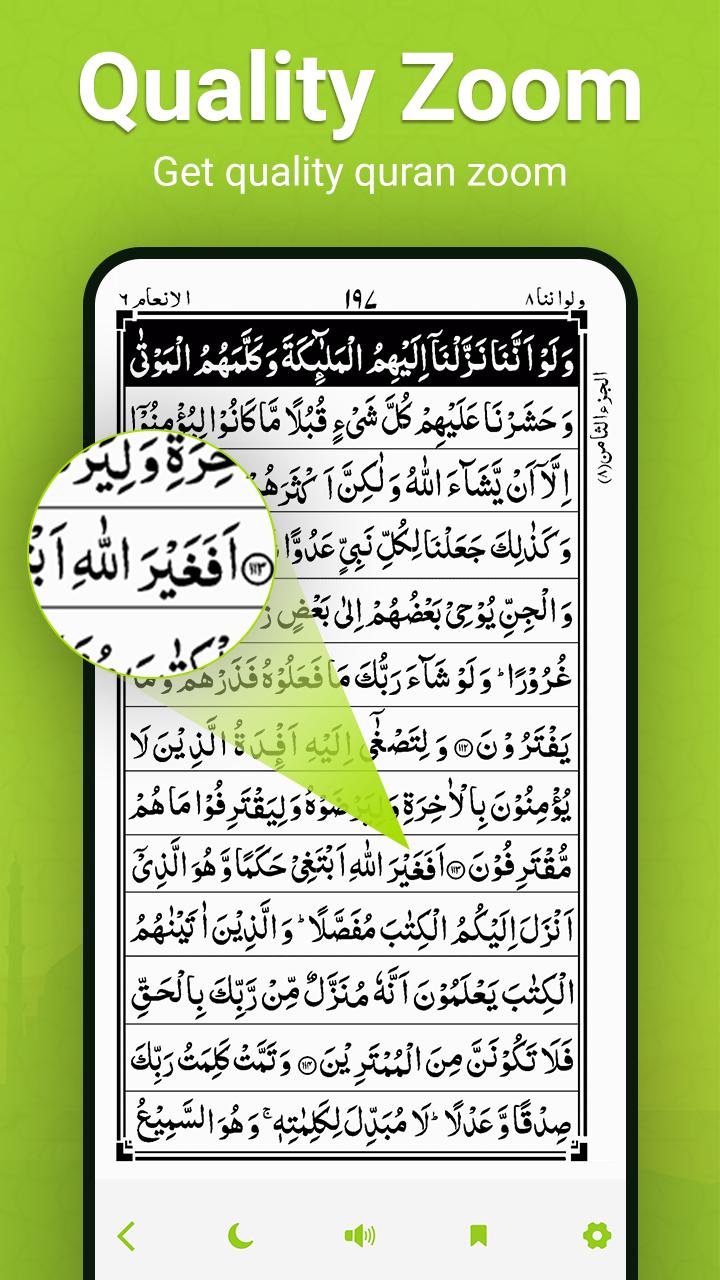 Quality Zoom
Get quality quran zoom
ولواننا ٨
١٩٧
الانعام ٦
وَلَوْ اَنَّنَا نَزَّلْنَاۤ اِلَيْهِمُ الْمَلٰٓئِكَةَ وَكَلَّمَهُمُ الْمَوْتٰى
وَحَشَرْنَا عَلَيْهِمْ كُلَّ شَیْءٍ قُبُلًا مَّا كَانُوْا لِيُؤْمِنُوْۤا
اِلَّاۤ اَنْ يَّشَآءَ اللّٰهُ وَلٰكِنَّ اَكْثَرَهُمْ
وَكَذٰلِكَ جَعَلْنَا لِكُلِّ نَبِیٍّ عَدُوًّا
وَالْجِنِّ يُوْحِیْ بَعْضُهُمْ اِلٰى بَعْضٍ
غُرُوْرًا ؕ وَلَوْ شَآءَ رَبُّكَ مَا فَعَلُوْهُ فَذَرْهُمْ وَمَا
يَفْتَرُوْنَ ﴿١١٢﴾ وَلِتَصْغٰۤى اِلَيْهِ اَفْـِٕدَةُ الَّذِيْنَ لَا
يُؤْمِنُوْنَ بِالْاٰخِرَةِ وَلِيَرْضَوْهُ وَلِيَقْتَرِفُوْا مَا هُمْ
مُّقْتَرِفُوْنَ ﴿١١٣﴾ اَفَغَيْرَ اللّٰهِ اَبْتَغِیْ حَكَمًا وَّهُوَ الَّذِیْۤ
اَنْزَلَ اِلَيْكُمُ الْكِتٰبَ مُفَصَّلًا ؕ وَالَّذِيْنَ اٰتَيْنٰهُمُ
الْكِتٰبَ يَعْلَمُوْنَ اَنَّهٗ مُنَزَّلٌ مِّنْ رَّبِّكَ بِالْحَقِّ
فَلَا تَكُوْنَنَّ مِنَ الْمُمْتَرِيْنَ ﴿١١٤﴾ وَتَمَّتْ كَلِمَتُ رَبِّكَ
صِدْقًا وَّعَدْلًا ؕ لَا مُبَدِّلَ لِكَلِمٰتِهٖ ۚ وَهُوَ السَّمِيْعُ
الجزء الثامن (٨)
خِرَةِ وَلِيَرْ
﴿١١٣﴾ اَفَغَيْرَ اللّٰهِ اَبْ